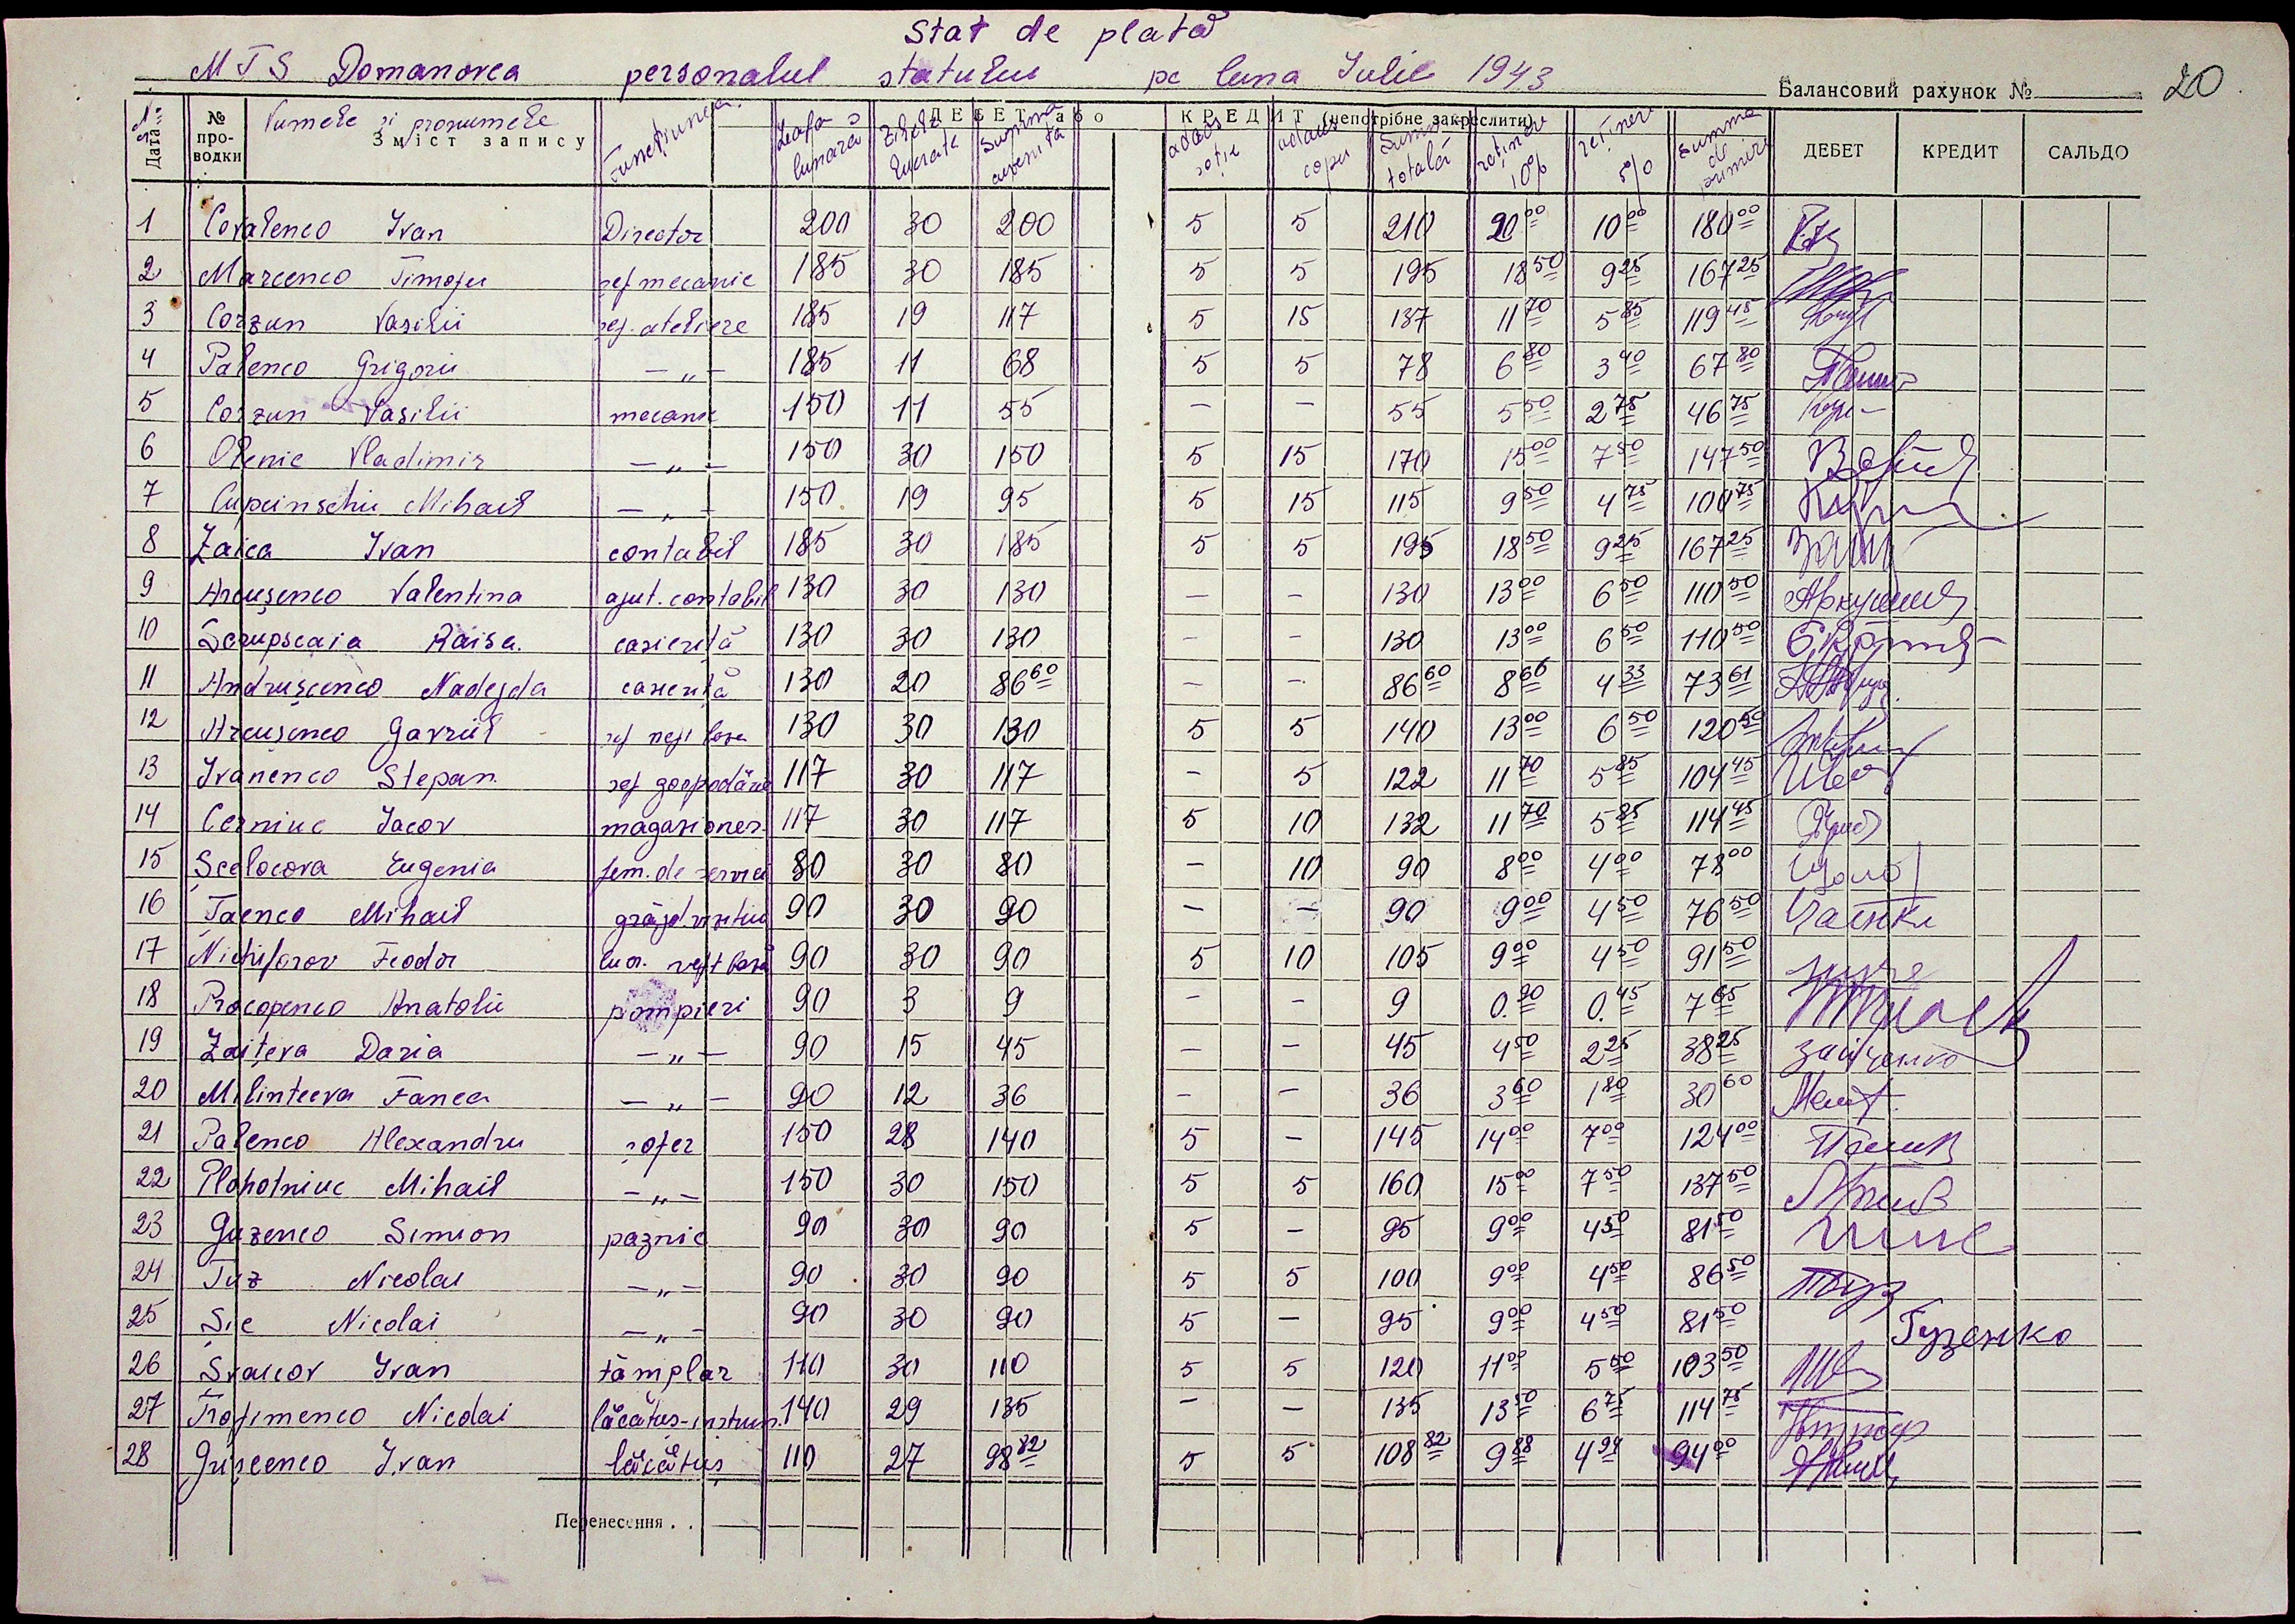 Stat de plată
MTS Domanovca personalul statului pe luna Iulie 1943 Балансовий рахунок № 20
Дата № про-водки Numele și pronumele Зміст запису Funcțiunea ДЕБЕТ або КРЕДИТ (непотрібне закреслити) Leafa lunară Zilele lucrate Summa cuvenită adaos soție adaus copii Suma totală rețineri 10% rețineri 5% Summa de primire ДЕБЕТ КРЕДИТ САЛЬДО
1 Covalenco Ivan Director 200 30 200 5 5 210 20 00 10 00 180 00
2 Marcenco Timofei șef mecanic 185 30 185 5 5 195 18 50 9 25 167 25
3 Corzun Vasilii șef. ateliere 185 19 117 5 15 137 11 70 5 85 119 45
4 Palenco Grigorii —„— 185 11 68 5 5 78 6 80 3 40 67 80
5 Corzun Vasilii mecanic 150 11 55 — — 55 5 50 2 75 46 75
6 Olenic Vladimir —„— 150 30 150 5 15 170 15 00 7 50 147 50
7 Cupcinschii Mihail —„— 150 19 95 5 15 115 9 50 4 75 100 75
8 Zaica Ivan contabil 185 30 185 5 5 195 18 50 9 25 167 25
9 Arcușenco Valentina ajut. contabil 130 30 130 — — 130 13 00 6 50 110 50
10 Scrupscaia Raisa casieriță 130 30 130 — — 130 13 00 6 50 110 50
11 Andrușcenco Nadejda casieriță 130 20 86 60 — — 86 60 8 66 4 33 73 61
12 Arcușenco Gavriil șef 130 30 130 5 5 140 13 00 6 50 120 50
13 Ivanenco Stepan șef gospodărie 117 30 117 — 5 122 11 70 5 85 104 45
14 Cerniuc Iacov magazioner 117 30 117 5 10 132 11 70 5 85 114 45
15 Școlocova Eugenia fem. de serviciu 80 30 80 — 10 90 8 00 4 00 78 00
16 Țaenco Mihail grăjd. vizitiu 90 30 90 — — 90 9 00 4 50 76 50
17 Nichiforov Feodor lucr. 90 30 90 5 10 105 9 00 4 50 91 50
18 Procopenco Anatolii pompieri 90 3 9 — — 9 0.90 0.45 7 65
19 Zaițeva Daria —„— 90 15 45 — — 45 4 50 2 25 38 25
20 Milinteeva Fanea —„— 90 12 36 — — 36 3 60 1 80 30 60
21 Palenco Alexandru șofer 150 28 140 5 — 145 14 00 7 00 124 00
22 Plohotniuc Mihail —„— 150 30 150 5 5 160 15 00 7 50 137 50
23 Guzenco Simion paznic 90 30 90 5 — 95 9 00 4 50 81 50
24 Tuz Nicolai —„— 90 30 90 5 5 100 9 00 4 50 86 50
25 Șic Nicolai —„— 90 30 90 5 — 95 9 00 4 50 81 50 Гузенко
26 Șvaicov Ivan tâmplar 110 30 110 5 5 120 11 00 5 50 103 50
27 Trofimenco Nicolai lăcătuș-instrum. 140 29 135 — — 135 13 50 6 75 114 75
28 Grișcenco Ivan lăcătuș 110 27 98 82 5 5 108 82 9 88 4 94 94 00
Перенесення . .